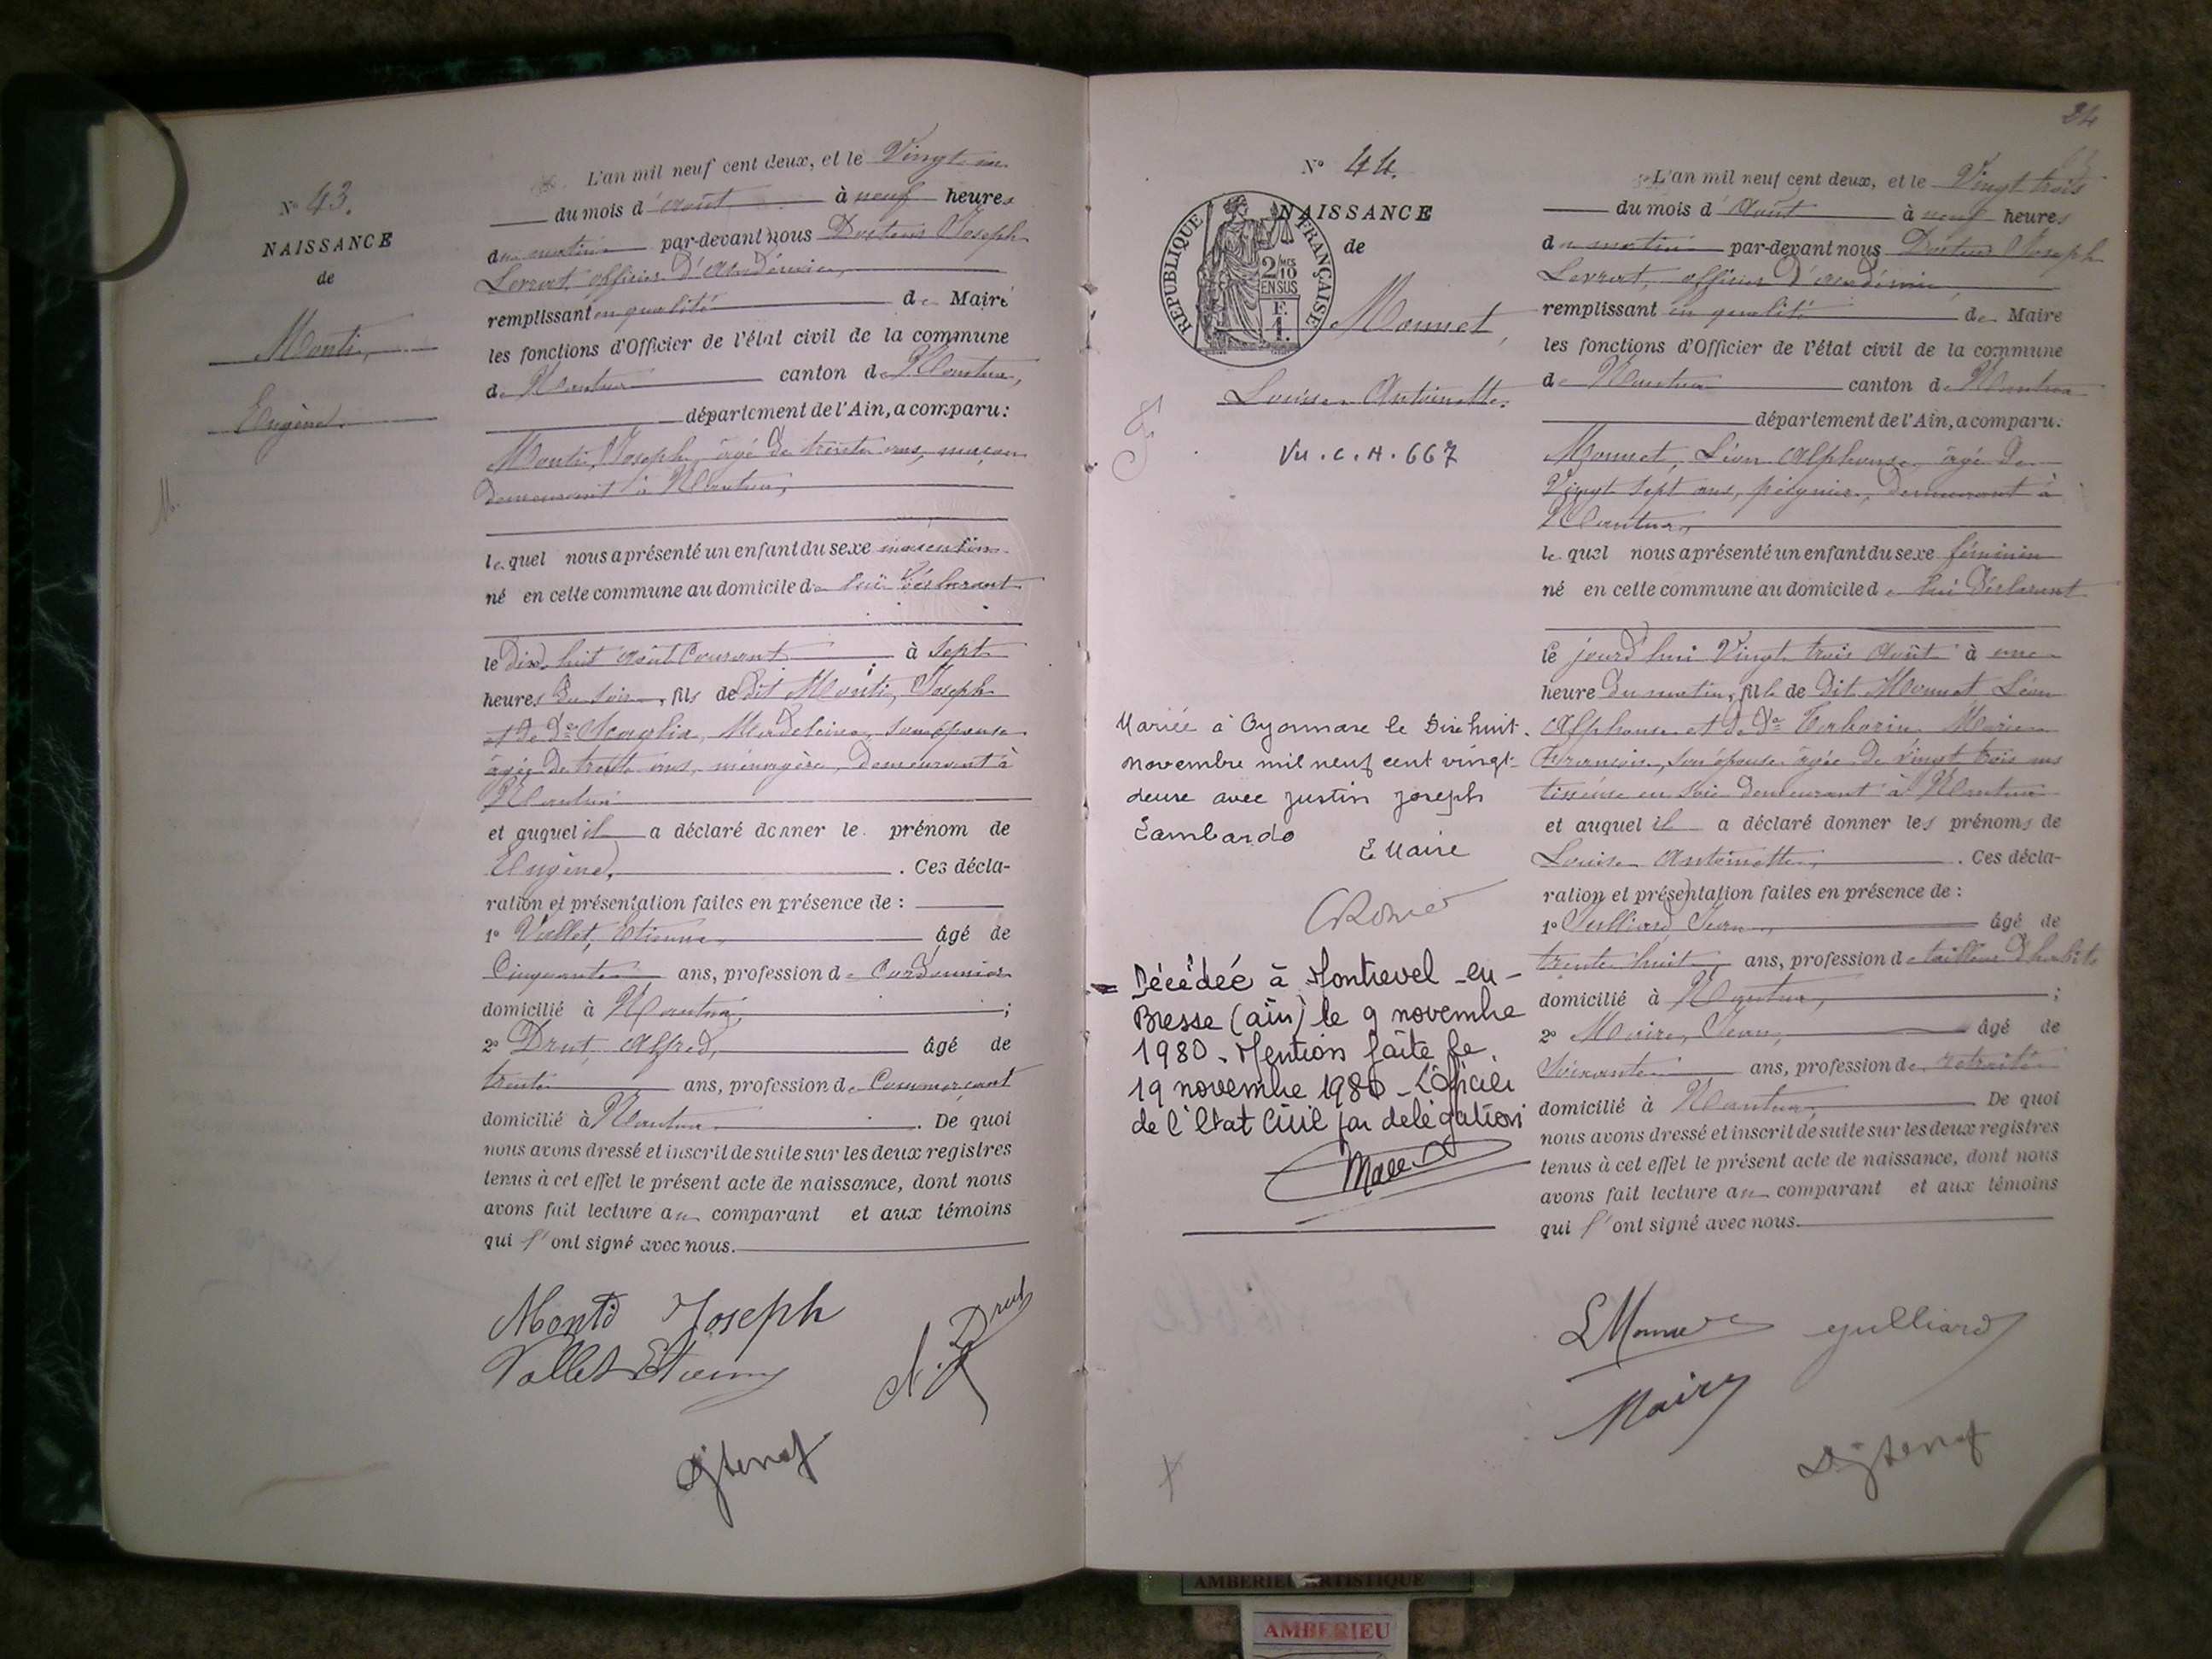 N° 43.
NAISSANCE
de
Monti,
Eugène.
L'an mil neuf cent deux, et le Vingt un
du mois d'août à neuf heures
du matin par-devant nous Docteur Joseph
Levrat officier d'Académie,
remplissant en qualité de Maire
les fonctions d'Officier de l'état civil de la commune
de Nantua canton de Nantua,
département de l'Ain, a comparu :
Monti, Joseph, âgé de trente ans, maçon
demeurant à Nantua,
lequel nous a présenté un enfant du sexe masculin
né en cette commune au domicile de lui déclarant
le dix huit août courant à sept
heures du soir, fils de dit Monti, Joseph
et de de Scaglia, Madeleine, son épouse
âgée de trente ans, ménagère, demeurant à
Nantua
et auquel il a déclaré donner le prénom de
Eugène. . Ces décla-
ration et présentation faites en présence de :
1° Vallet, Etienne, âgé de
Cinquante ans, profession de Cordonnier
domicilié à Nantua, ;
2° Drut Alfred, âgé de
trente ans, profession de Commerçant
domicilié à Nantua . De quoi
nous avons dressé et inscrit de suite sur les deux registres
tenus à cet effet le présent acte de naissance, dont nous
avons fait lecture au comparant et aux témoins
qui l'ont signé avec nous.
Monti Joseph
A. Drut
Vallet Etienne
24
N° 44.
NAISSANCE
de
RÉPUBLIQUE FRANÇAISE
2/10 MES
EN SUS
F.
1.
Monnet,
Louise Antoinette.
Vu . C . H . 667
Mariée à Oyonnax le Dix huit
novembre mil neuf cent vingt
deux avec Justin Joseph
Lambardo
Le Maire
Décédée à Montrevel-en-
Bresse (ain) le 9 novembre
1980. Mention faite le
19 novembre 1980 - L'officier
de l'Etat Civil par délégation
L'an mil neuf cent deux, et le Vingt trois
du mois d'Août à neuf heures
du matin par-devant nous Docteur Joseph
Levrat, officier d'académie
remplissant en qualité de Maire
les fonctions d'Officier de l'état civil de la commune
de Nantua canton de Nantua
département de l'Ain, a comparu :
Monnet, Léon Alphonse âgé de
Vingt sept ans, peignier, demeurant à
Nantua,
lequel nous a présenté un enfant du sexe féminin
né en cette commune au domicile de lui déclarant
le jourd'hui Vingt trois Août à une
heure du matin, fille de dit Monnet Léon
Alphonse et de de Tabarin Marie
Françoise, son épouse âgée de vingt trois ans
tisseuse en soie demeurant à Nantua
et auquel il a déclaré donner les prénoms de
Louise Antoinette, . Ces décla-
ration et présentation faites en présence de :
1° Julliard Jean, âgé de
trente huit ans, profession de tailleur d'habits
domicilié à Nantua, ;
2° Jean, âgé de
Soixante ans, profession de retraité
domicilié à Nantua, De quoi
nous avons dressé et inscrit de suite sur les deux registres
tenus à cet effet le présent acte de naissance, dont nous
avons fait lecture au comparant et aux témoins
qui l'ont signé avec nous.
LMonnet Julliard
AMBERIEU ARTISTIQUE
AMBERIEU